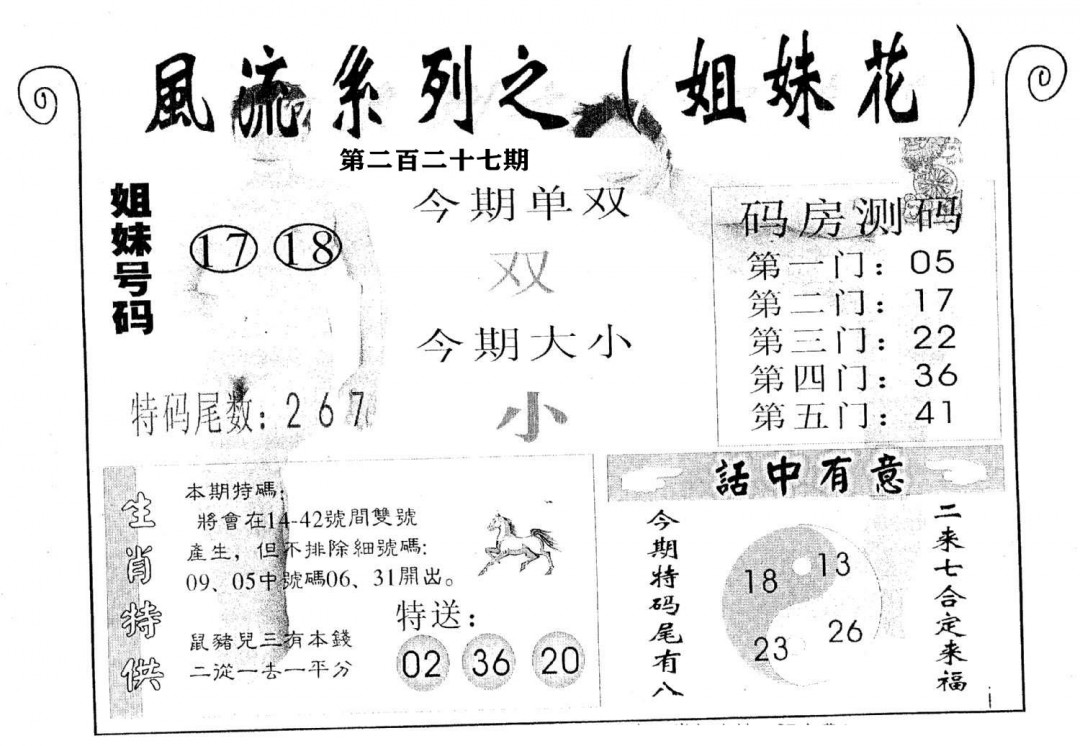 風流系列之（姐妹花）
第二百二十七期
姐妹号码
17 18
特码尾数：267
今期单双
双
今期大小
小
码房测码
第一门：05
第二门：17
第三门：22
第四门：36
第五门：41
生肖特供
本期特碼：
將會在14-42號間雙號
產生，但不排除細號碼:
09、05中號碼06、31開出。
鼠豬兒三有本錢
二從一去一平分
特送：
02 36 20
話中有意
今期特码尾有八
18 13
23 26
二来七合定来福